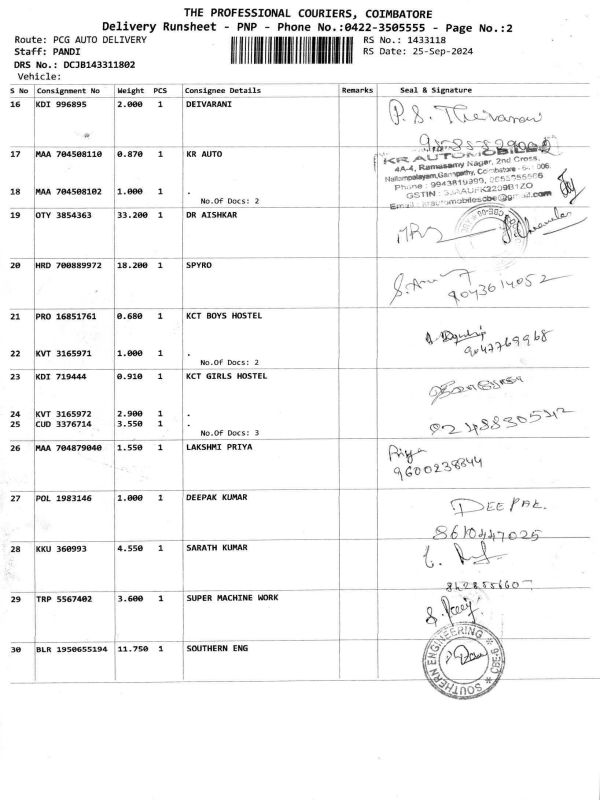 THE PROFESSIONAL COURIERS, COIMBATORE
Delivery Runsheet - PNP - Phone No.:0422-3505555 - Page No.:2
Route: PCG AUTO DELIVERY RS No.: 1433118
Staff: PANDI RS Date: 25-Sep-2024
DRS No.: DCJB143311802
Vehicle:
S No Consignment No Weight PCS Consignee Details Remarks Seal & Signature
16 KDI 996895 2.000 1 DEIVARANI
17 MAA 704508110 0.870 1 KR AUTO
KR AUTOMOBILES
4A-4, Ramasamy Nagar, 2nd Cross,
18 MAA 704508102 1.000 1 .
No.Of Docs: 2
19 OTY 3854363 33.200 1 DR AISHKAR
20 HRD 700889972 18.200 1 SPYRO
9043614052
21 PRO 16851761 0.680 1 KCT BOYS HOSTEL
9047769968
22 KVT 3165971 1.000 1 .
No.Of Docs: 2
23 KDI 719444 0.910 1 KCT GIRLS HOSTEL
24 KVT 3165972 2.900 1 .
25 CUD 3376714 3.550 1 .
No.Of Docs: 3
26 MAA 704879040 1.550 1 LAKSHMI PRIYA Priya
9600238844
27 POL 1983146 1.000 1 DEEPAK KUMAR DEEPAK
8610447025
28 KKU 360993 4.550 1 SARATH KUMAR
29 TRP 5567402 3.600 1 SUPER MACHINE WORK
30 BLR 1950655194 11.750 1 SOUTHERN ENG SOUTHERN ENGINEERING